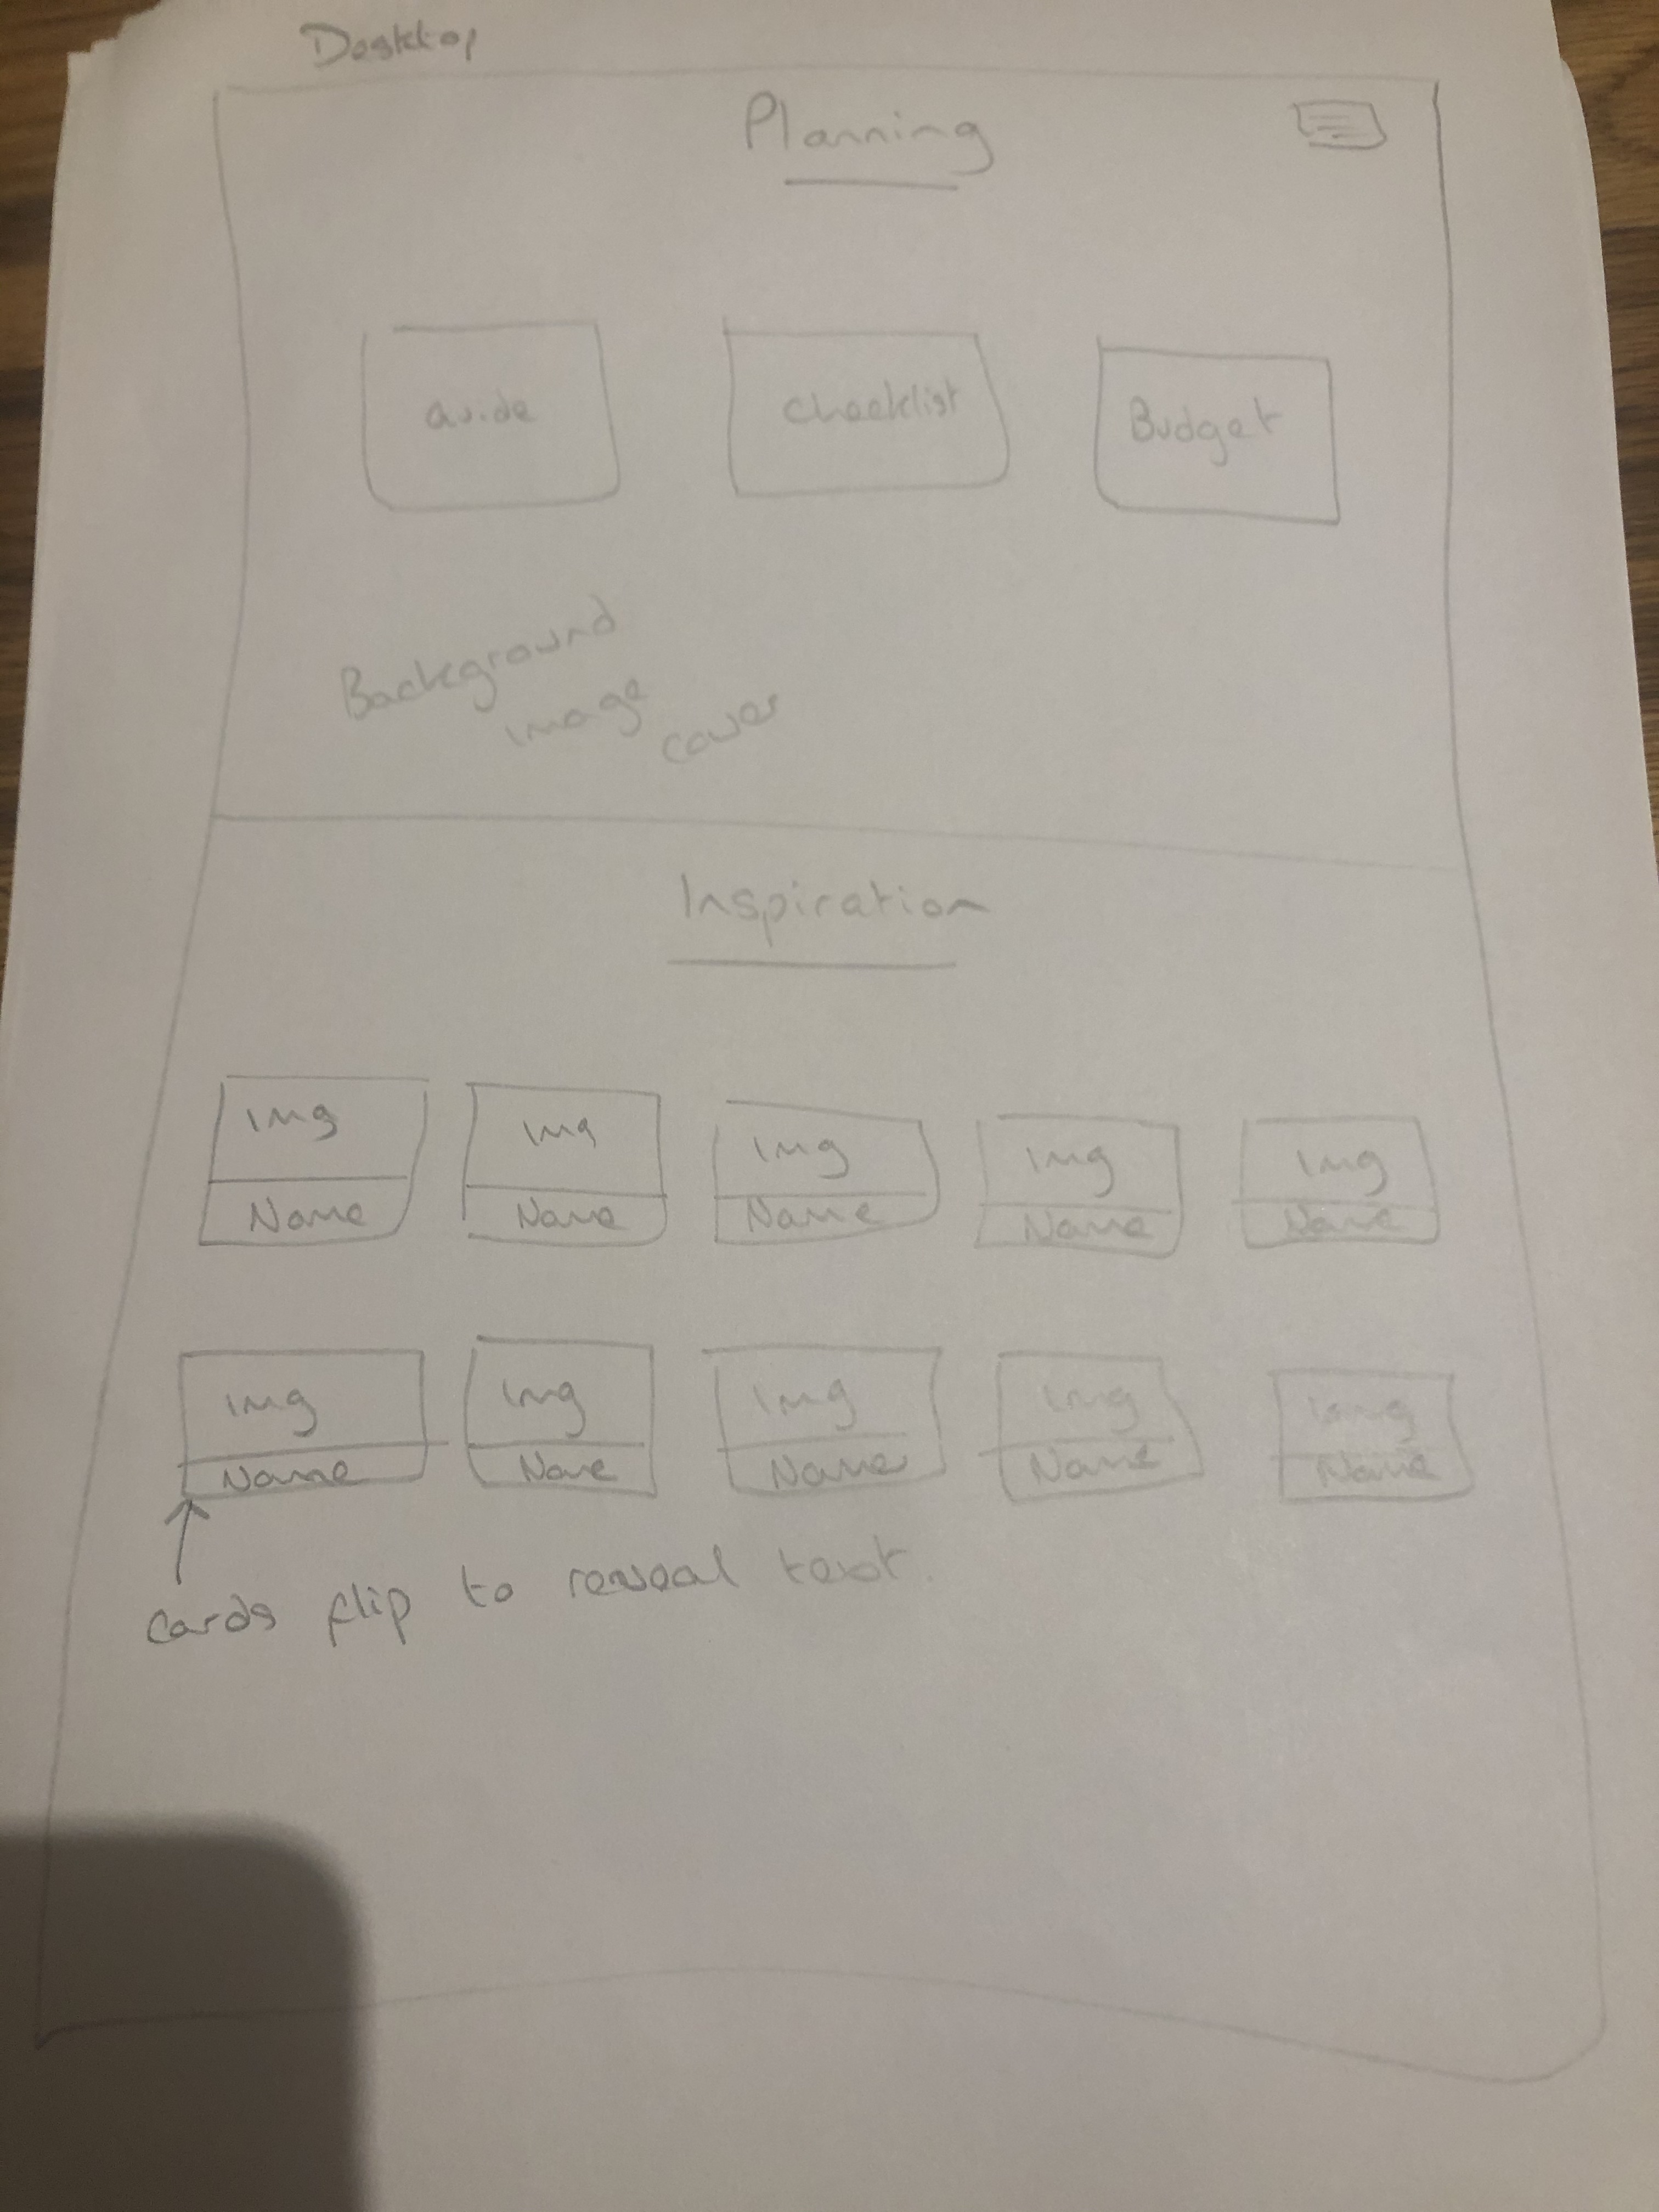 Desktop
Planning
Guide
Checklist
Budget
Background
image
cover
Inspiration
Img
Img
Img
Img
Img
Name
Name
Name
Name
Name
Img
Img
Img
Img
Img
Name
Name
Name
Name
Name
cards flip to reveal text.